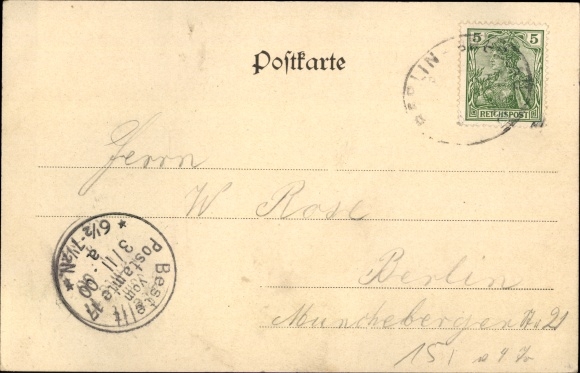 Postkarte
5 5
REICHSPOST
BERLIN
Herrn
W. Rose
Berlin
Münchebergerstr 21
151
Bestellt
vom
Postamte 17
3/11 00
6½-7½N.